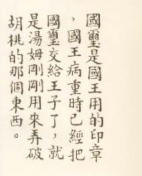 國璽是國王用的印章
，國王病重時已經把
國璽交給王子了，就
是湯姆剛剛用來弄破
胡桃的那個東西。